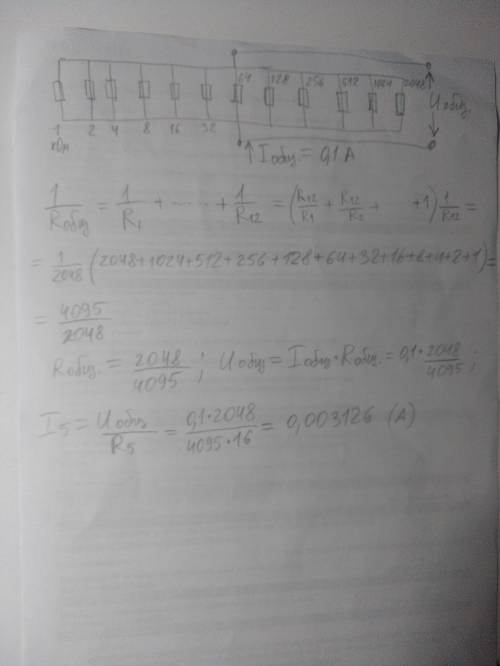 64 128 256 512 1024 2048
Uобщ.
1 2 4 8 16 32
кОм
↑ Iобщ. = 0,1 А
1/Rобщ = 1/R1 + ...... + 1/R12 = (R12/R1 + R12/R2 + +1) 1/R12 =
= 1/2048 (2048+1024+512+256+128+64+32+16+8+4+2+1) =
= 4095/2048
Rобщ. = 2048/4095 ; Uобщ = Iобщ · Rобщ. = 0,1 · 2048/4095 ;
I5 = Uобщ/R5 = 0,1·2048/4095·16 = 0,003126 (А)